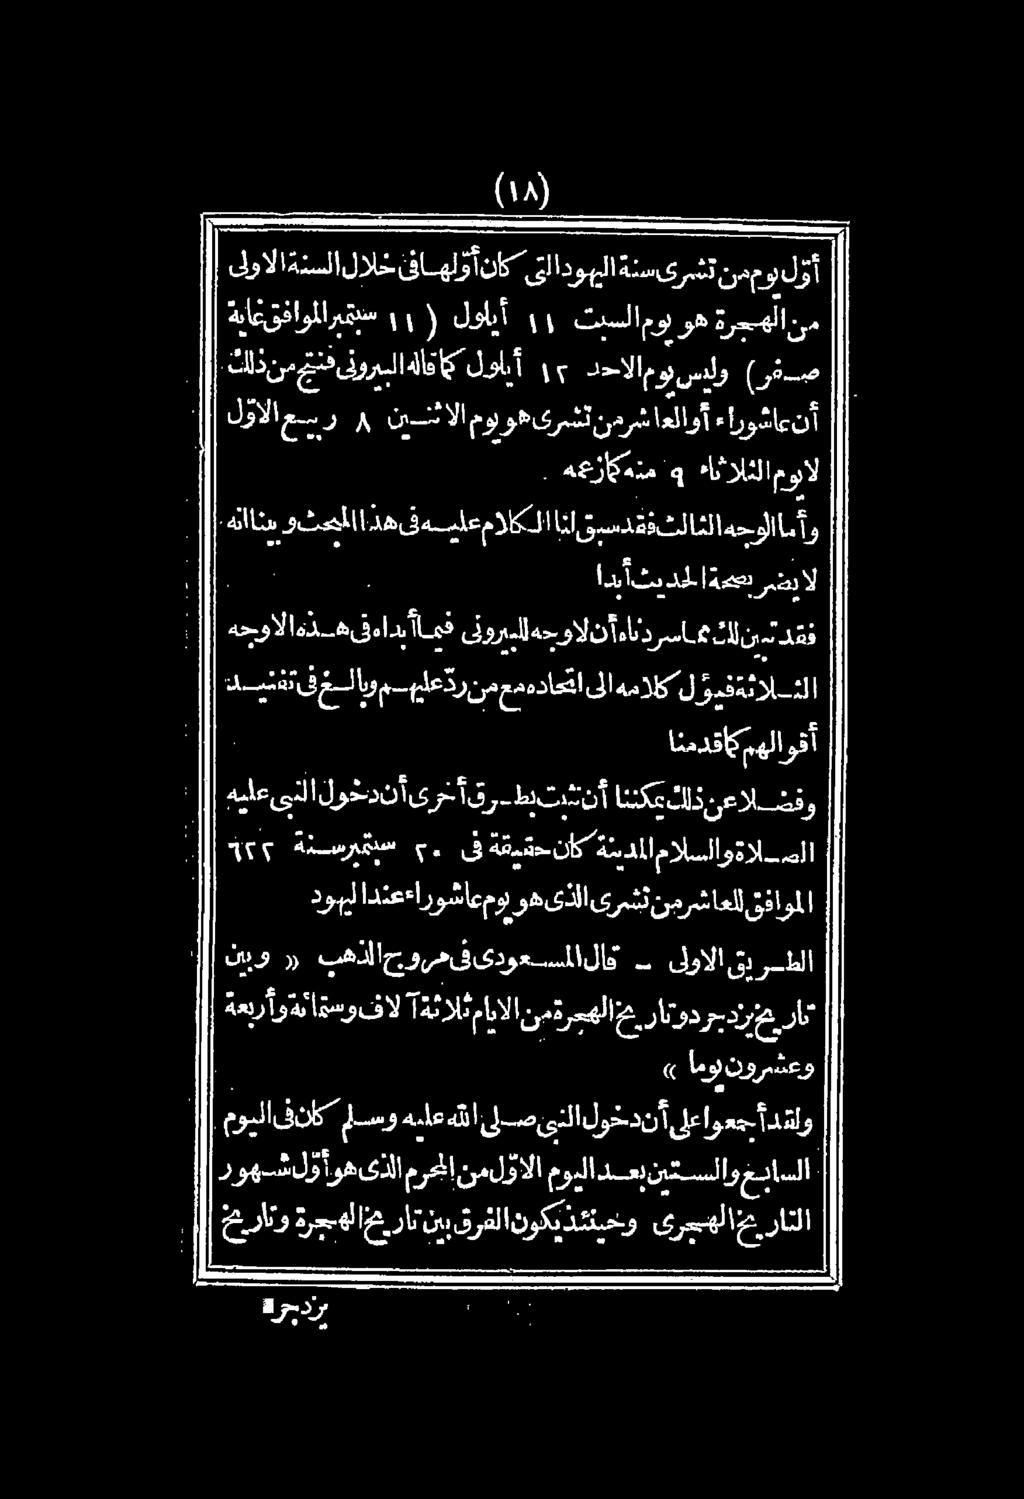 (١٨)
أوّل يوم من تشرى سنة اليهود التى كان أوّلها فى خلال السنة الاولى
من الهجرة هو يوم السبت ١١ أيلول ( ١١ سبتمبر الموافق غاية
صفر) وليس يوم الاحد ١٢ أيلول كما قاله البيرونى فنتج من ذلك
أن عاشوراء أو العاشر من تشرى هو يوم الاثنين ٨ ربيع الاوّل
لا يوم الثلاثاء ٩ منه كما زعمه .
وأما الوجه الثالث فقد سبق لنا الكلام عليه فى هذا المبحث وبينا انه
لا يضر بصحة الحديث أبدا
فقد تبين لك مما سردناه أن لا وجه للبيرونى فيما أبداه فى هذه الاوجه
الثلاثة فيؤل كلامه الى اتحاده مع من ردّ عليهم وبالغ فى تفنيد
أقوالهم كما قدمنا
وفضلا عن ذلك يمكننا أن نثبت بطرق أخرى أن دخول النبى عليه
الصلاة والسلام المدينة كان حقيقة فى ٢٠ سبتمبر سنة ٦٢٢
الموافق للعاشر من تشرى الذى هو يوم عاشوراء عند اليهود
الطريق الاولى - قال المسعودى فى مروج الذهب « وبين
تاريخ يزدجرد وتاريخ الهجرة من الايام ثلاثة آلاف وستمائة وأربعة
وعشرون يوما »
ولقد أجمعوا على أن دخول النبى صلى الله عليه وسلم كان فى اليوم
السابع والستين بعد اليوم الاوّل من المحرم الذى هو أوّل شهور
التاريخ الهجرى وحينئذ يكون الفرق بين تاريخ الهجرة وتاريخ
يزدجر